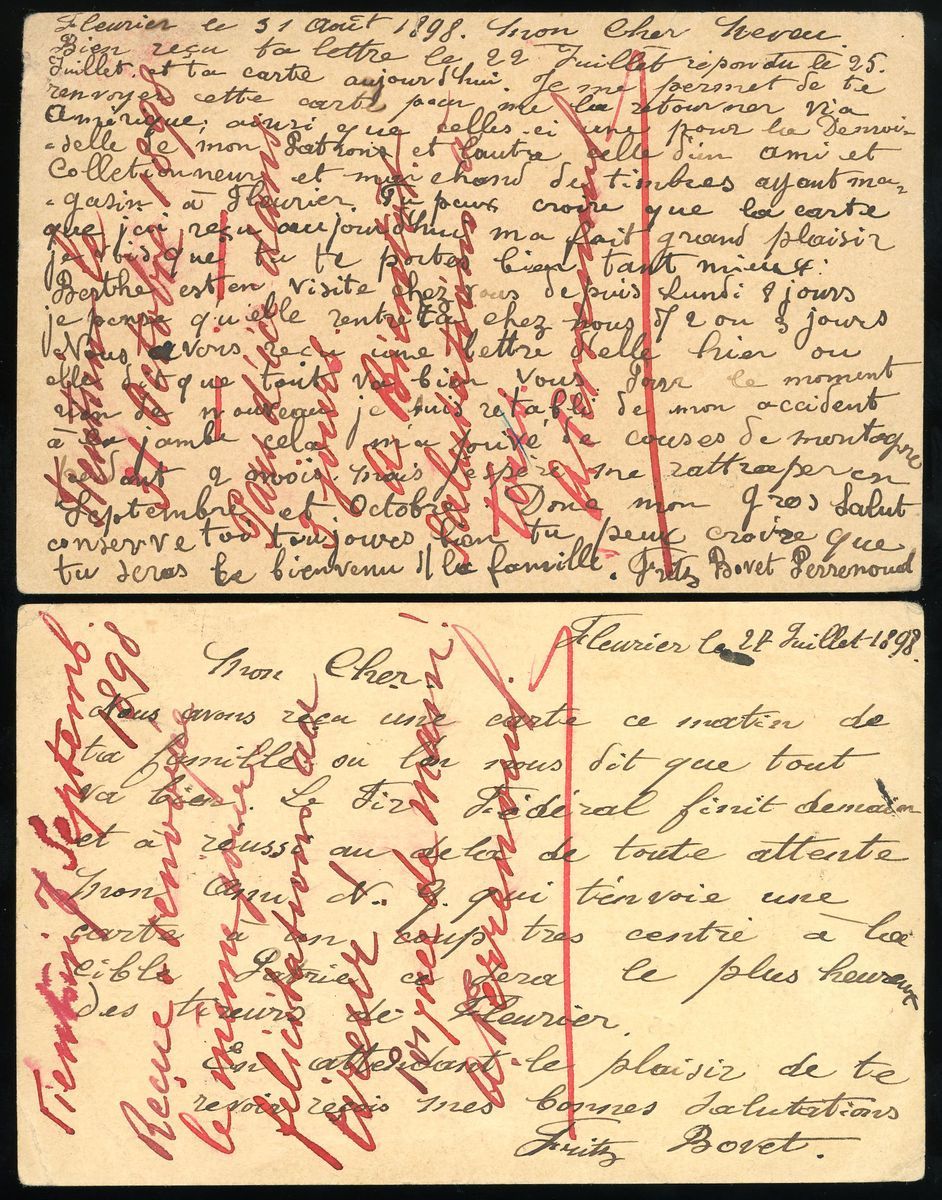 Fleurier le 31 Août 1898. Mon Cher Neveu.
Bien reçu ta lettre le 22 Juillet répondu le 25.
Juillet. et ta carte aujourd'hui. Je me permet de te
renvoyer cette carte pour me la retourner via
Amérique, ainsi que celles-ci une pour la Demoi-
-delle de mon Patrons et l'autre celle d'un ami et
Colletionneur et marchand de timbres ayant ma-
-gasin à Fleurier. Tu peux croire que la carte
que j'ai reçu aujourd'hui ma fait grand plaisir
je vois que tu te portes bien tant mieux.
Berthe est en visite chez vous depuis Lundi 8 jours
je pense qu'elle rentrera chez nous d'ı 2 ou 3 jours
Nous avons reçu une lettre d'elle hier ou
elle dit que tout va bien vous. Pour le moment
rien de nouveau je suis rétabli de mon accident
à la jambe cela m'a privé de couses de montagne
pendant 2 mois mais j'espère me rattraper en
Septembre et Octobre. Done mon gros Salut
conserve toi toujours bien tu peux croire que
tu seras le bienvenu d/ la famille. Fritz Bovet Perrenoud
Tientsin le
Octobre 1898
3 jours
Salutations à
Tous.
A. Perrenoud
Fleurier le 27 Juillet 1898.
Mon Cher.
Nous avons reçu une carte ce matin de
ta famille ou l'on nous dit que tout
va bien. Le Tir Fédéral finit demain
et a réussi au dela de toute attente
Mon ami N. J. qui t'envoie une
carte à un coup tres centré à la
cible Patrie ce sera le plus heureux
des tireurs de Fleurier.
En attendant le plaisir de te
revoir reçois mes bonnes salutations
Fritz Bovet.
Tientsin 7 Septemb.
1898
Reçue & renvoyée
le même jour
félicitations au
tireur
Poignée de main!
A. Perrenoud.